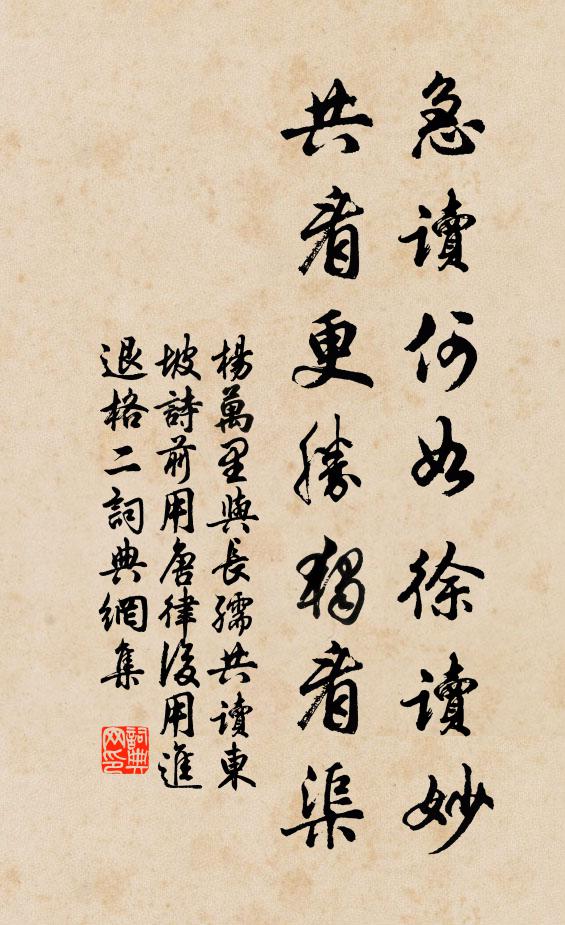 急讀何如徐讀妙
共看更勝獨看渠
楊萬里與長孺共讀東
坡詩前用唐律後用進
退格二詞典網集
詞典
网印